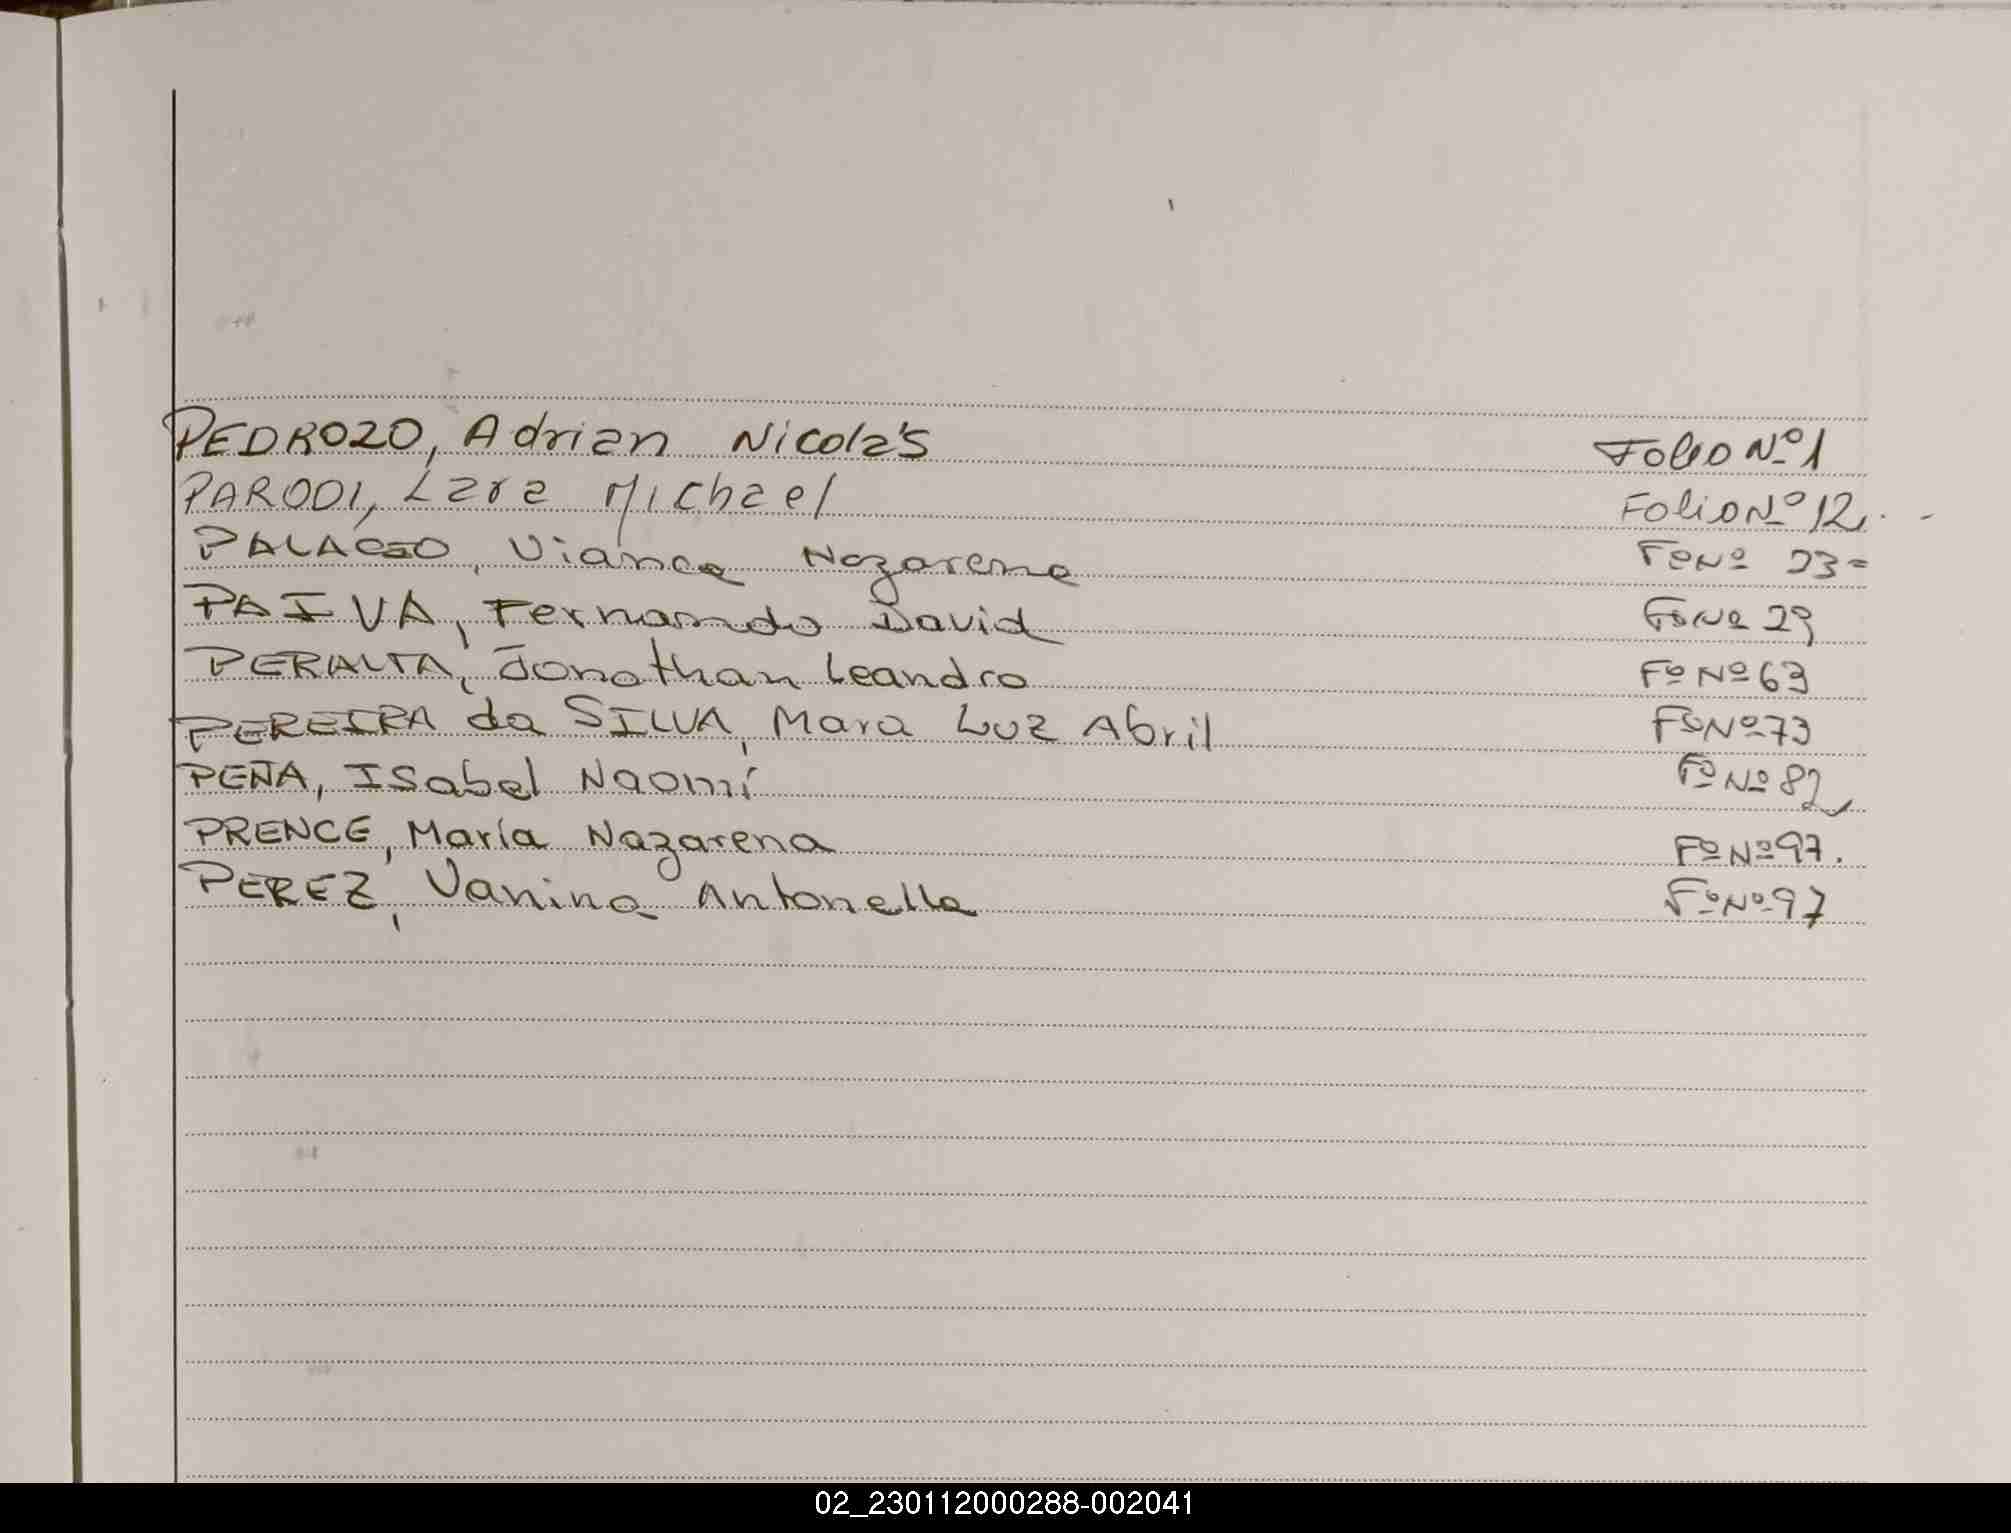 PEDROZO, Adrian Nicolás Folio Nº 1
PARODI, Lara Michael Folio Nº 12.-
PALACIO, Vianca Nazarena Fº Nº 23=
PAIVA, Fernando David Fº Nº 29
PERALTA, Jonathan Leandro Fº Nº 63
PEREIRA da SILVA, Mara Luz Abril Fº Nº 73
PEÑA, Isabel Naomí Fº Nº 82
PRENCE, María Nazarena Fº Nº 97.
PEREZ, Vanina Antonella Fº Nº 97
02_230112000288-002041